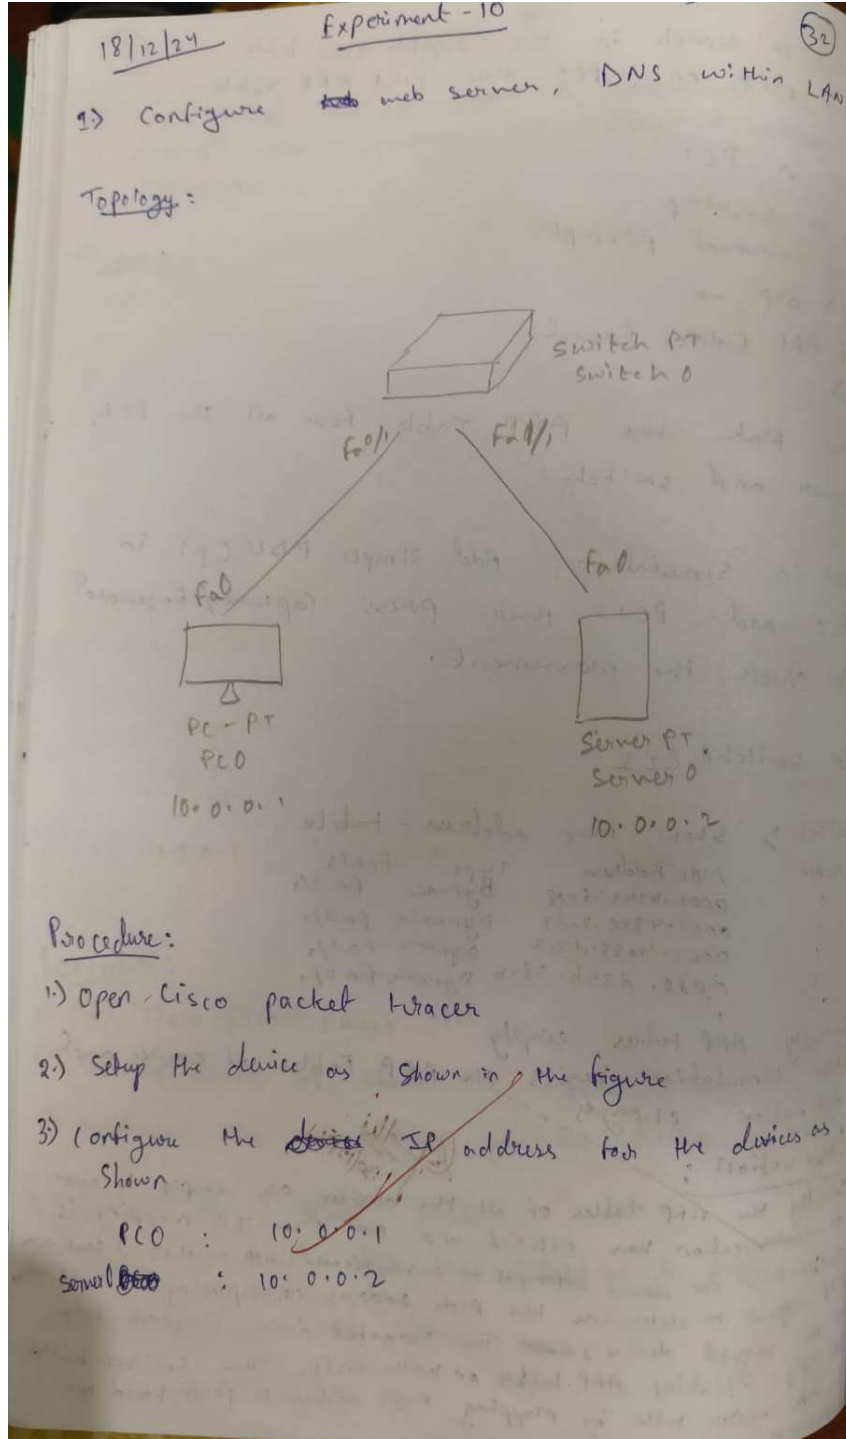 18/12/24
Experiment - 10
32
1.) Configure web server, DNS within LAN
Topology:
Switch PT
Switch 0
Fa0/1
Fa1/1
Fa0
Fa0
PC-PT
PC0
10.0.0.1
Server PT
Server 0
10.0.0.2
Procedure:
1.) Open Cisco packet tracer
2.) Setup the device as shown in the figure
3.) Configure the IP address for the devices as
shown.
PC0 : 10.0.0.1
Server0 : 10.0.0.2